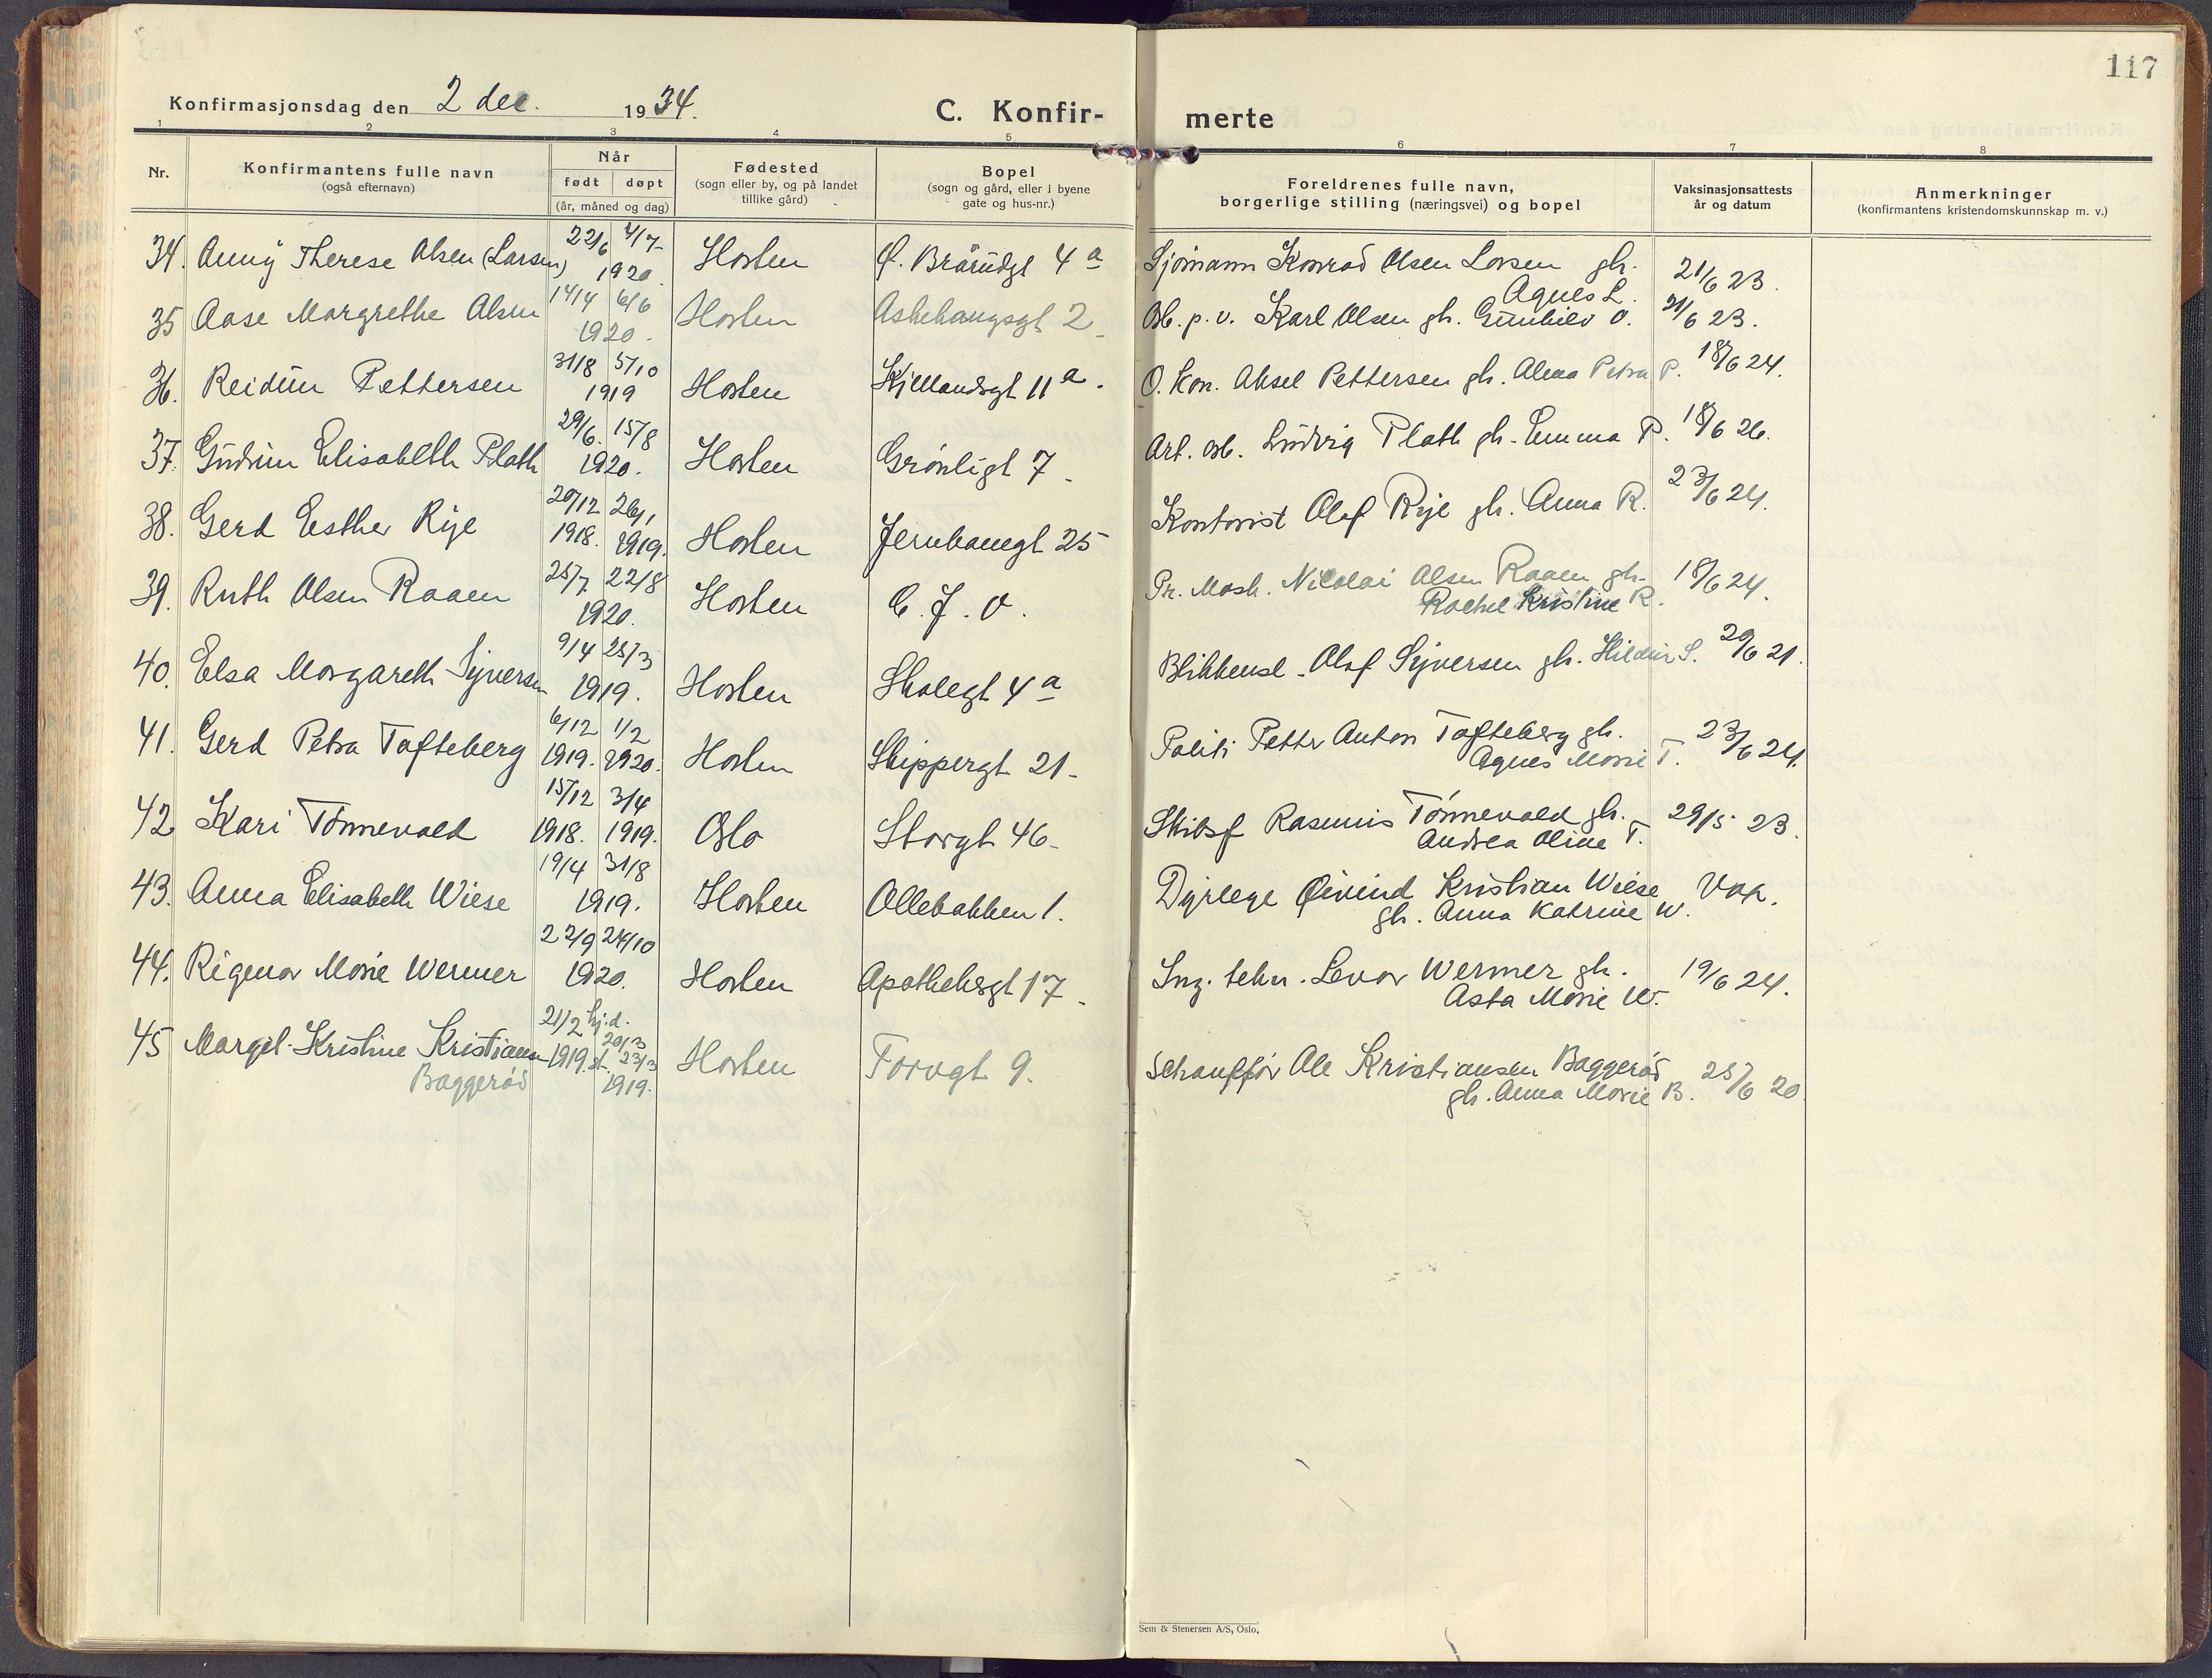 117
Konfirmasjonsdag den 2 dec. 1934.
C. Konfir-
merte
1 2 3 4 5 6 7 8
Nr.
Konfirmantens fulle navn
(også efternavn)
Når
født døpt
(år, måned og dag)
Fødested
(sogn eller by, og på landet
tillike gård)
Bopel
(sogn og gård, eller i byene
gate og hus-nr.)
Foreldrenes fulle navn,
borgerlige stilling (næringsvei) og bopel
Vaksinasjonsattests
år og datum
Anmerkninger
(konfirmantens kristendomskunnskap m. v.)
34. Anny Therese Olsen (Larsen) 22/6 4/7 1920. Horten Ø. Brårudgt 4 a Sjømann Konrad Olsen Larsen gh. 21/6 23.
Agnes L.
35 Aase Margrethe Olsen 14/4 6/6 1920. Horten Askehaugsgt 2 Arb. p. v. Karl Olsen gh. Gunhilv O. 21/6 23.
36. Reidun Pettersen 31/8 5/10 1919 Horten Kjellandsgt 11 a. O. Kon. Aksel Pettersen gh. Alma Petra P. 18/6 24.
37. Gudrun Elisabeth Plath 29/6. 15/8 1920. Horten Grønligt 7 Art. arb. Ludvig Plath gh. Emma P. 18/6 26.
38. Gerd Esther Rye 20/12 26/1 1918. 1919. Horten Jernbanegt 25 Kontorist Olaf Rye gh. Anna R. 23/6 24.
39. Ruth Olsen Raaen 25/7. 22/8 1920. Horten C. J. V. Pr. Mask. Nicolai Olsen Raaen gh. 18/6 24.
Rachel Kristine R.
40. Elsa Margareth Syversen 9/4 25/3 1919. Horten Skolegt 4 a Blikkensl. Olaf Syversen gh. Hildur S. 29/6 21.
41. Gerd Petra Tofteberg 6/12 1/2 1919. 1920. Horten Skippergt 21 Politi Petter Anton Tofteberg gh. 23/6 24.
Agnes Marie T.
42 Kari Tønnevold 15/12 3/4 1918. 1919. Oslo Storgt 46 Skibsf Rasmus Tønnevold gh. 29/5 23.
Andrea Oline T.
43. Anna Elisabeth Wiese 19/4 31/8 1919. Horten Ollebakken 1. Dyrlege Øivind Kristian Wiese Vax.
gh. Anna Katrine W.
44. Rigmor Marie Wermer 22/9 24/10 1920. Horten Apotheksgt 17 Ing. tekn. Levor Wermer gh. 19/6 24.
Asta Marie W.
45 Margit Kristine Kristiansen 21/2 hj.d. 20/3 1919. st. 23/3 Horten Torvgt 9. Schauffør Ole Kristiansen Baggerød 25/6 20.
Baggerød 1919. gh. Anna Marie B.
Sem & Stenersen A/S, Oslo.